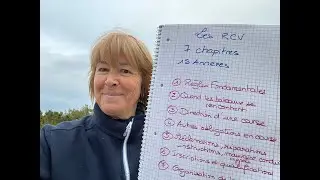 Les RCV
7 chapitres
15 Annexes
① Règles Fondamentales
② Quand les bateaux se
rencontrent
③ Direction d'une course
④ Autres obligations en course
⑤ Réclamations, réparations
instructions, mauvaise conduite
⑥ Inscriptions et qualifications
⑦ Organisation de